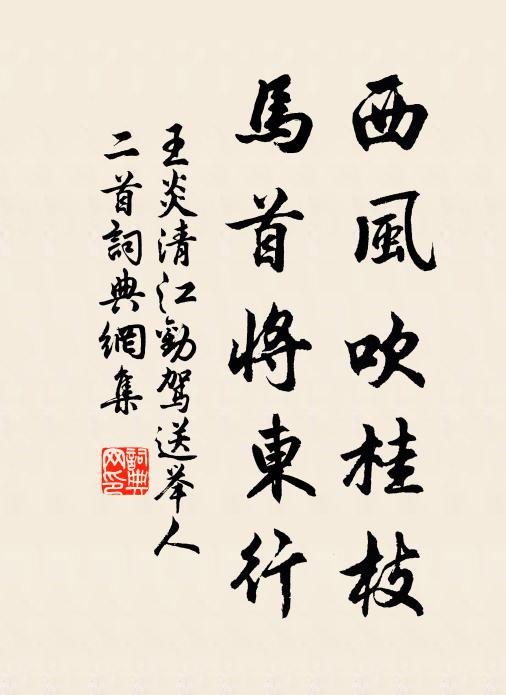 西風吹桂枝
馬首將東行
王炎清江勸駕送举人
二首詞典網集
詞典网印